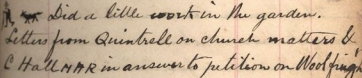 Did a little work in the garden.
Letters from Quintrell on church matters &
C Hall MHR in answer to petition on Wool fring